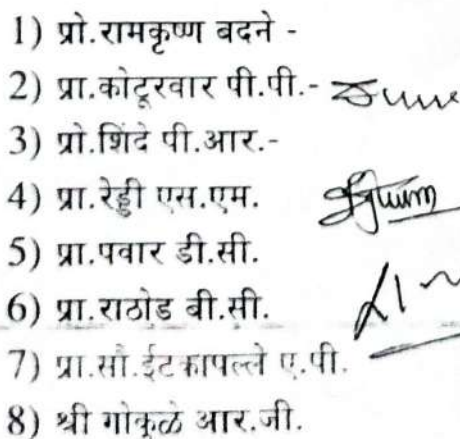 1) प्रो.रामकृष्ण बदने -
2) प्रा.कोटूरवार पी.पी.-
3) प्रो.शिंदे पी.आर.-
4) प्रा.रेड्डी एस.एम.
5) प्रा.पवार डी.सी.
6) प्रा.राठोड बी.सी.
7) प्रा.सौ.ईटकापल्ले ए.पी.
8) श्री गोकुळे आर.जी.